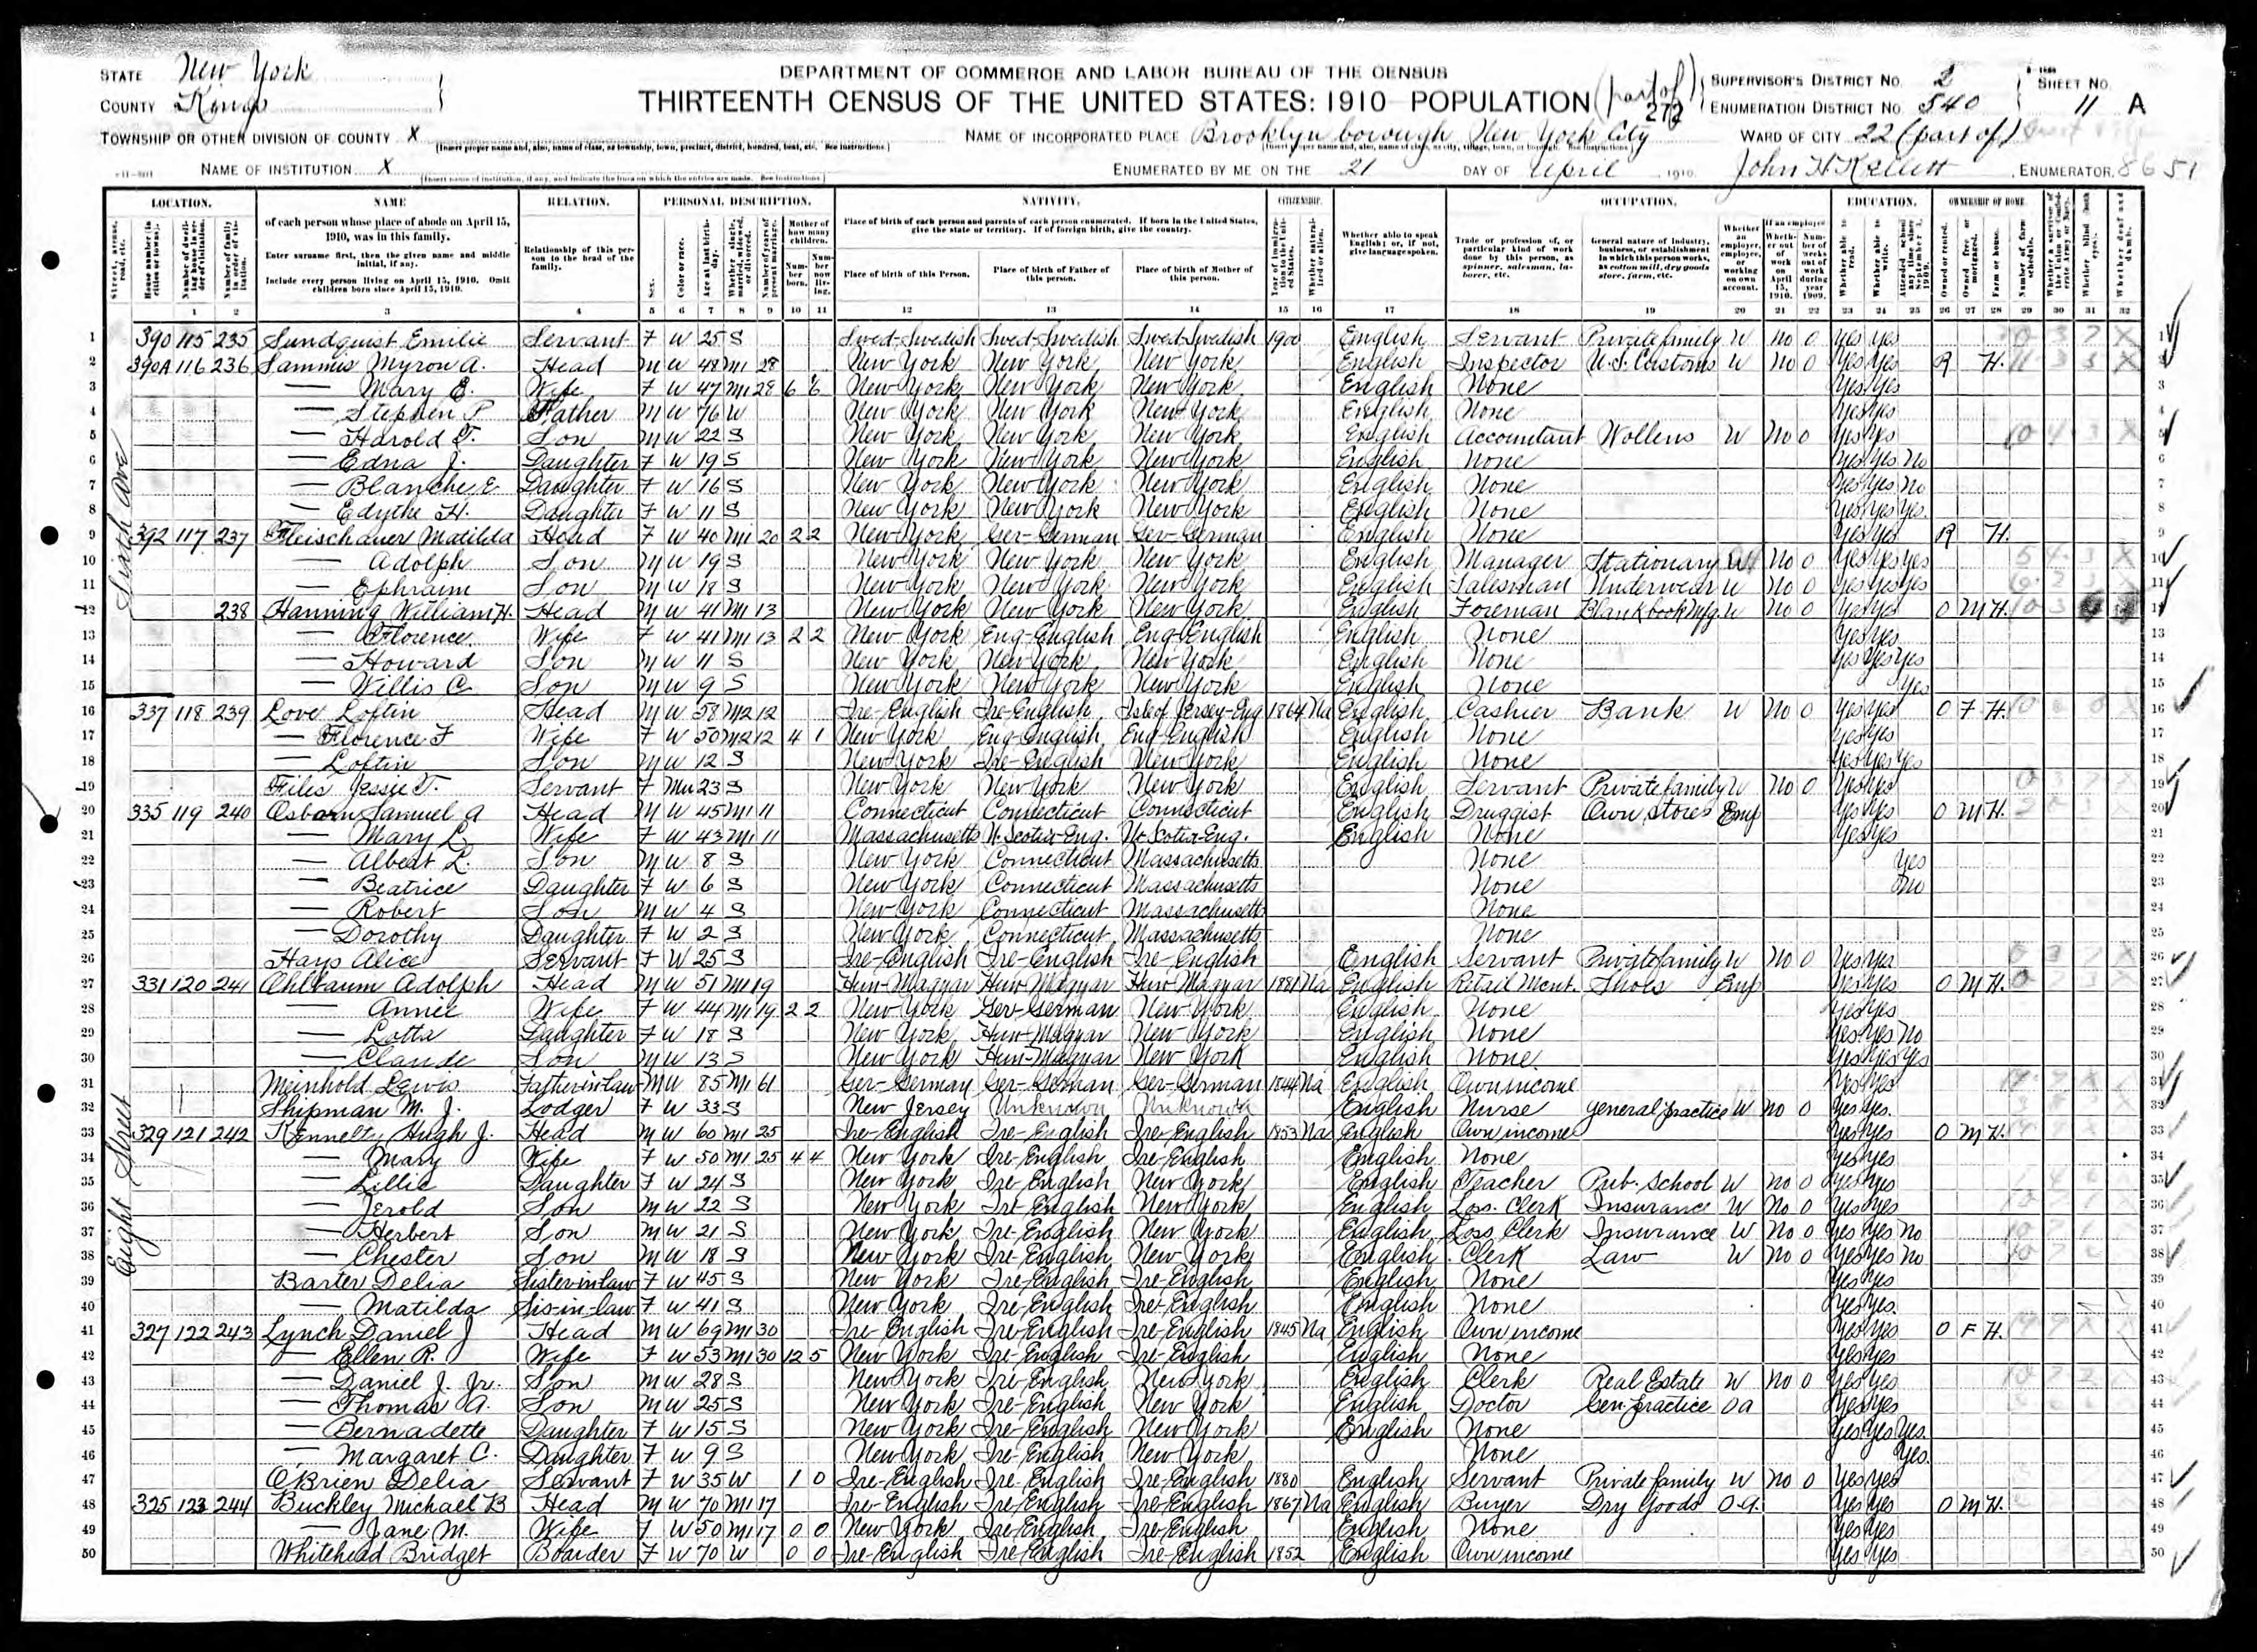 STATE New York
COUNTY Kings
DEPARTMENT OF COMMERCE AND LABOR BUREAU OF THE CENSUS
THIRTEENTH CENSUS OF THE UNITED STATES: 1910 POPULATION (part of) 272
SUPERVISOR'S DISTRICT NO. 2
ENUMERATION DISTRICT NO. 540
SHEET NO. 11 A
TOWNSHIP OR OTHER DIVISION OF COUNTY X
(Insert proper name and, also, name of class, as township, town, precinct, district, hundred, beat, etc. See instructions.)
NAME OF INCORPORATED PLACE Brooklyn borough New York City
WARD OF CITY 22 (part of)
NAME OF INSTITUTION X
(Insert name of institution, if any, and indicate the lines on which the entries are made. See instructions.)
ENUMERATED BY ME ON THE 21 DAY OF April 1910. John H. Kellett, ENUMERATOR. 8651
LOCATION. NAME RELATION. PERSONAL DESCRIPTION. NATIVITY. CITIZENSHIP. OCCUPATION. EDUCATION. OWNERSHIP OF HOME.
of each person whose place of abode on April 15, 1910, was in this family.
Enter surname first, then the given name and middle initial, if any.
Include every person living on April 15, 1910. Omit children born since April 15, 1910.
Relationship of this person to the head of the family.
Place of birth of each person and parents of each person enumerated. If born in the United States, give the state or territory. If of foreign birth, give the country.
Place of birth of this Person. Place of birth of Father of this person. Place of birth of Mother of this person.
Whether able to speak English; or, if not, give language spoken.
Trade or profession of, or particular kind of work done by this person, as spinner, salesman, laborer, etc.
General nature of industry, business, or establishment in which this person works, as cotton mill, dry goods store, farm, etc.
Sixth Ave
1 390 115 235 Sundquist Emilie Servant F W 25 S Swed-Swedish Swed-Swedish Swed-Swedish 1900 English Servant Private family W No 0 Yes Yes
2 390A 116 236 Sammis Myron A. Head M W 48 M1 28 New York New York New York English Inspector U.S. Customs W No 0 Yes Yes R H.
3 — Mary E. Wife F W 47 M1 28 6 6 New York New York New York English None Yes Yes
4 — Stephen P. Father M W 76 W New York New York New York English None Yes Yes
5 — Harold T. Son M W 22 S New York New York New York English Accountant Wollens W No 0 Yes Yes
6 — Edna J. Daughter F W 19 S New York New York New York English None Yes Yes No
7 — Blanche E Daughter F W 16 S New York New York New York English None Yes Yes No
8 — Edythe H. Daughter F W 11 S New York New York New York English None Yes Yes Yes.
9 392 117 237 Fleischauer Matilda Head F W 40 M1 20 2 2 New York Ger-German Ger-German English None Yes Yes R H.
10 — Adolph Son M W 19 S New York New York New York English Manager Stationary W No 0 Yes Yes Yes
11 — Ephraim Son M W 18 S New York New York New York English Salesman Underwear W No 0 Yes Yes Yes
12 238 Hanning William H. Head M W 41 M1 13 New York New York New York English Foreman Blank book Mfg. W No 0 Yes Yes O M H.
13 — Florence Wife F W 41 M1 13 2 2 New York Eng-English Eng-English English None Yes Yes
14 — Howard Son M W 11 S New York New York New York English None Yes Yes Yes
15 — Willis C. Son M W 9 S New York New York New York English None Yes
Eight Street
16 337 118 239 Love Loftin Head M W 58 M2 12 Ire-English Ire-English Isle of Jersey-Eng 1864 Na English Cashier Bank W No 0 Yes Yes O F H.
17 — Florence F Wife F W 50 M2 12 4 1 New York Eng-English Eng-English English None Yes Yes
18 — Loftin Son M W 12 S New York Ire-English New York English None Yes Yes Yes
19 Files Jessie T. Servant F Mu 23 S New York New York New York English Servant Private family W No 0 Yes Yes
20 335 119 240 Osborn Samuel A Head M W 45 M1 11 Connecticut Connecticut Connecticut English Druggist Own stores Emp Yes Yes O M H.
21 — Mary L. Wife F W 43 M1 11 Massachusetts N. Scotia-Eng. N. Scotia-Eng. English None Yes Yes
22 — Albert L. Son M W 8 S New York Connecticut Massachusetts None Yes
23 — Beatrice Daughter F W 6 S New York Connecticut Massachusetts None No
24 — Robert Son M W 4 S New York Connecticut Massachusetts None
25 — Dorothy Daughter F W 2 S New York Connecticut Massachusetts None
26 Hays Alice Servant F W 25 S Ire-English Ire-English Ire-English English Servant Private family W No 0 Yes Yes
27 331 120 241 Ohlbaum Adolph Head M W 51 M1 19 Hun-Magyar Hun-Magyar Hun-Magyar 1881 Na English Retail Mcnt. Shoes Emp Yes Yes O M H.
28 — Annie Wife F W 44 M1 19 2 2 New York Ger-German New York English None Yes Yes
29 — Lotta Daughter F W 18 S New York Hun-Magyar New York English None Yes Yes No
30 — Claude Son M W 13 S New York Hun-Magyar New York English None Yes Yes Yes
31 Meinhold Lewis Father-in-law M W 85 M1 61 Ger-German Ger-German Ger-German 1844 Na English Own income Yes Yes
32 Shipman M. J. Lodger F W 33 S New Jersey Unknown Unknown English Nurse general practice W No 0 Yes Yes.
33 329 121 242 Kennelty Hugh J. Head M W 60 M1 25 Ire-English Ire-English Ire-English 1853 Na English Own income Yes Yes O M H.
34 — Mary Wife F W 50 M1 25 4 4 New York Ire-English Ire-English English None Yes Yes
35 — Lillie Daughter F W 24 S New York Ire-English New York English Teacher Pub. School W No 0 Yes Yes
36 — Jerold Son M W 22 S New York Ire-English New York English Loss. Clerk Insurance W No 0 Yes Yes
37 — Herbert Son M W 21 S New York Ire-English New York English Loss Clerk Insurance W No 0 Yes Yes No
38 — Chester Son M W 18 S New York Ire-English New York English Clerk Law W No 0 Yes Yes No
39 Barter Delia Sister-in-law F W 45 S New York Ire-English Ire-English English None Yes Yes
40 — Matilda Sis-in-law F W 41 S New York Ire-English Ire-English English None Yes Yes.
41 327 122 243 Lynch Daniel J Head M W 69 M1 30 Ire-English Ire-English Ire-English 1845 Na English Own income Yes Yes O F H.
42 — Ellen R. Wife F W 53 M1 30 12 5 New York Ire-English Ire-English English None Yes Yes
43 — Daniel J. Jr. Son M W 28 S New York Ire-English New York English Clerk Real Estate W No 0 Yes Yes
44 — Thomas A. Son M W 25 S New York Ire-English New York English Doctor Gen. practice O a Yes Yes
45 — Bernadette Daughter F W 15 S New York Ire-English New York English None Yes Yes Yes.
46 — Margaret C. Daughter F W 9 S New York Ire-English New York None Yes.
47 O'Brien Delia Servant F W 35 W 1 0 Ire-English Ire-English Ire-English 1880 English Servant Private family W No 0 Yes Yes
48 325 123 244 Buckley Michael B Head M W 70 M1 17 Ire-English Ire-English Ire-English 1867 Na English Buyer Dry Goods O a. Yes Yes O M H.
49 — Jane M. Wife F W 50 M1 17 0 0 New York Ire-English Ire-English English None Yes Yes
50 Whitehead Bridget Boarder F W 70 W 0 0 Ire-English Ire-English Ire-English 1852 English Own income Yes Yes